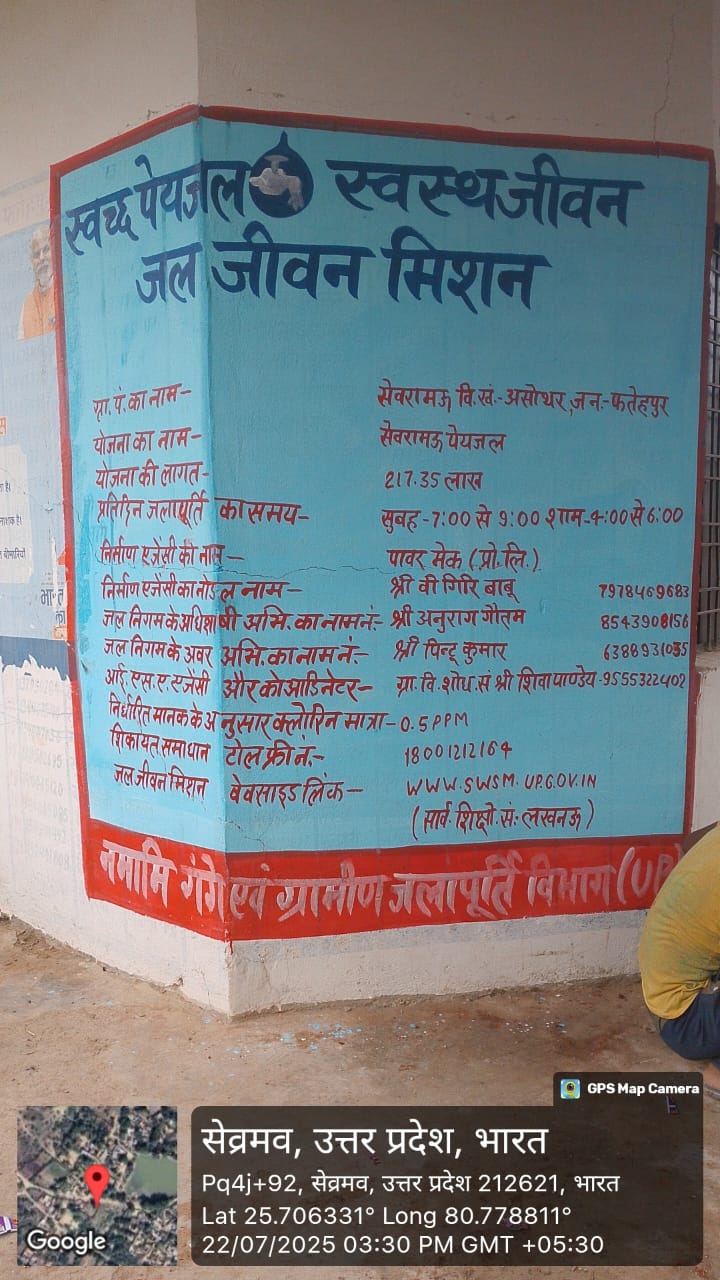 स्वच्छ पेयजल स्वस्थ जीवन
जल जीवन मिशन
ग्रा. पं. का नाम- सेवरामऊ वि.खं.- असोथर, जन.- फतेहपुर
योजना का नाम- सेवरामऊ पेयजल
योजना की लागत- 217.35 लाख
प्रतिदिन जलापूर्ति का समय- सुबह-7:00 से 9:00 शाम-4:00 से 6:00
निर्माण एजेंसी की नाम- पावर मेक (प्रो.लि.)
निर्माण एजेंसी का नोडल नाम- श्री वी गिरि बाबू 7978469683
जल निगम के अधिशाषी अभि. का नाम नं:- श्री अनुराग गौतम 8543908156
जल निगम के अवर अभि. का नाम नं:- श्री पिन्टू कुमार 6388931035
आई. एस. ए. एजेंसी और कोआर्डिनेटर- ग्रा. वि. शोध. सं श्री शिवा पाण्डेय-9555322402
निर्धारित मानक के अनुसार क्लोरिन मात्रा- 0.5 PPM
शिकायत समाधान टोल फ्री नं.- 18001212164
जल जीवन मिशन वेवसाइड लिंक- WWW.SWSM.UP.GOV.IN
(सार्व. शिक्षो. सं:- लखनऊ)
नमामि गंगे एवं ग्रामीण जलापूर्ति विभाग (UP)
GPS Map Camera
सेव्रमव, उत्तर प्रदेश, भारत
Pq4j+92, सेव्रमव, उत्तर प्रदेश 212621, भारत
Lat 25.706331° Long 80.778811°
22/07/2025 03:30 PM GMT +05:30
Google